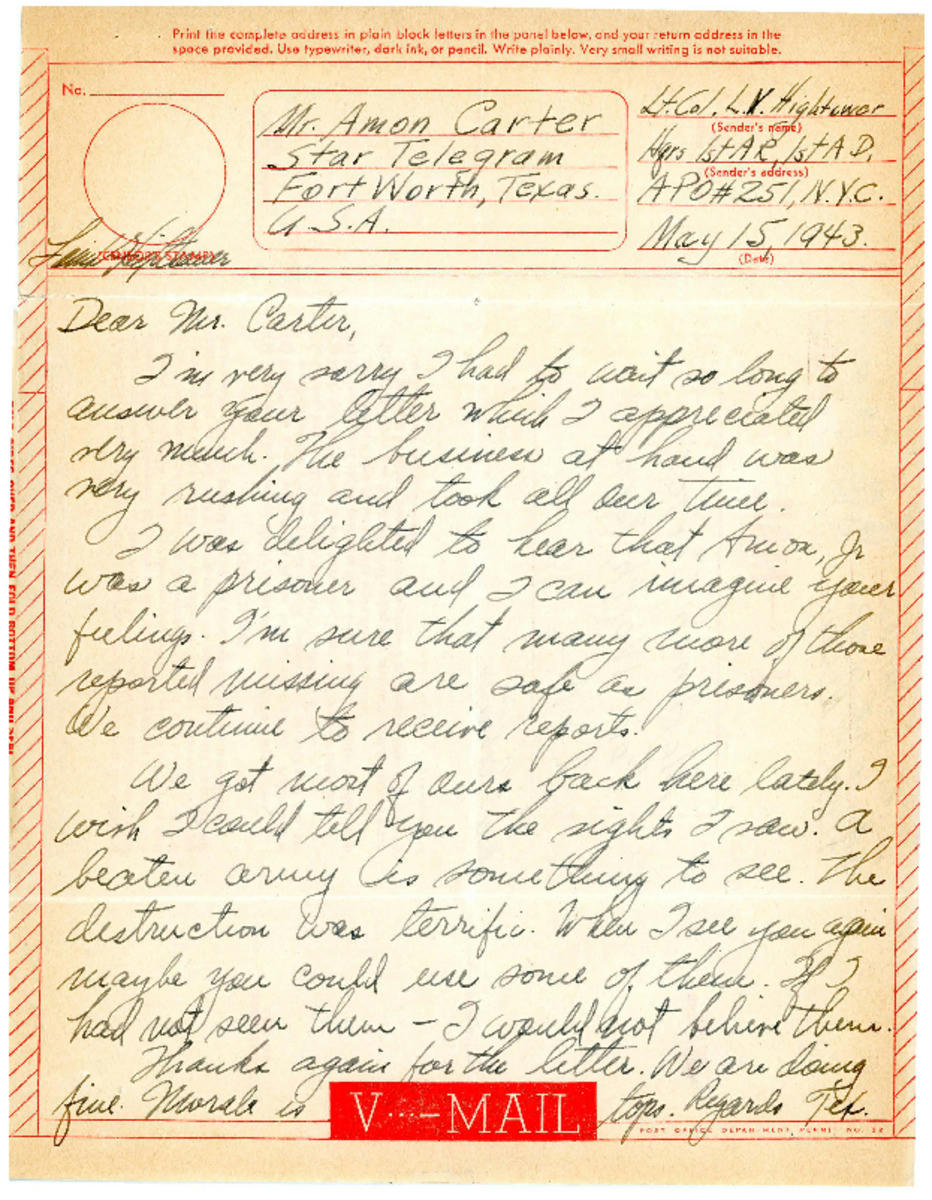 Print the complete address in plain block letters in the panel below, and your return address in the
space provided. Use typewriter, dark ink, or pencil. Write plainly. Very small writing is not suitable.
No.
Mr. Amon Carter
Star Telegram
Fort Worth, Texas.
U.S.A.
Lt. Col. L.V. Hightower
(Sender's name)
Hqrs 1st A R, 1st A D.
(Sender's address)
APO #251, N.Y.C.
May 15, 1943.
(Date)
Hightower
(CENSOR'S STAMP)
Dear Mr. Carter,
I'm very sorry I had to wait so long to
answer your letter which I appreciated
very much. The business at hand was
very rushing and took all our time.
I was delighted to hear that Amon, Jr
was a prisoner and I can imagine your
feelings. I'm sure that many more of those
reported missing are safe as prisoners.
We continue to receive reports.
We got most of ours back here lately. I
wish I could tell you the sights I saw. A
beaten army is something to see. The
destruction was terrific. When I see you again
maybe you could use some of them. If I
had not seen them – I would not believe them.
Thanks again for the letter. We are doing
fine. Morale is tops. Regards Tex.
V···—MAIL
POST OFFICE DEPARTMENT PERMIT NO.